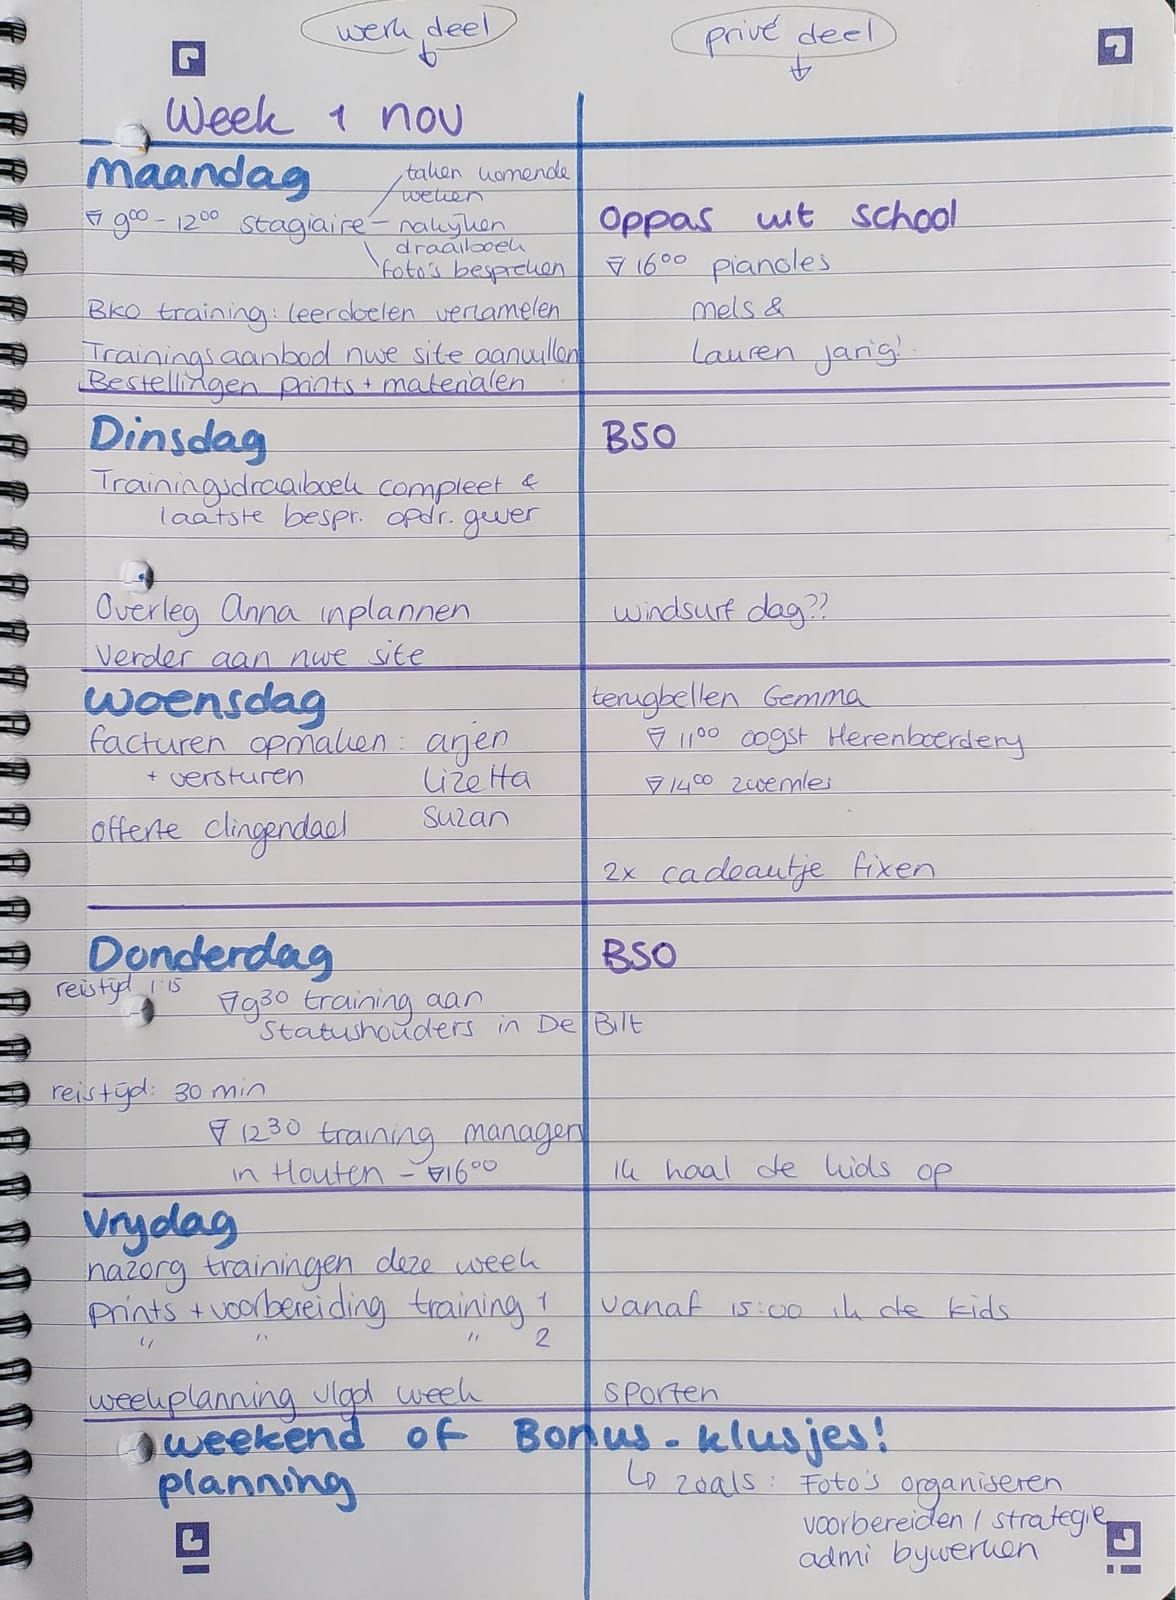 werk deel
privé deel
Week 1 nov
Maandag
taken komende
weken
▽ 9⁰⁰ - 12⁰⁰ stagiaire – nakijken
draaiboek
foto's bespreken
Oppas uit school
▽ 16⁰⁰ pianoles
BKO training: leerdoelen verzamelen
Mels &
Trainingsaanbod nwe site aanvullen
Lauren jarig!
Bestellingen prints + materialen
Dinsdag
BSO
Trainingsdraaiboek compleet &
laatste bespr. opdr. gever
Overleg Anna inplannen
windsurf dag??
Verder aan nwe site
Woensdag
terugbellen Gemma
facturen opmaken: arjen
▽ 11⁰⁰ oogst Herenboerderij
+ versturen
Lizetta
▽ 14⁰⁰ zwemles
offerte clingendael
Suzan
2x cadeautje fixen
Donderdag
BSO
reistijd 1:15
▽ 9³⁰ training aan
Statushouders in De Bilt
reistijd: 30 min
▽ 12³⁰ training managen
in Houten – ▽16⁰⁰
ik haal de kids op
Vrijdag
nazorg trainingen deze week
prints + voorbereiding training 1
vanaf 15:00 ik de kids
" " " 2
weekplanning vlgd week
sporten
weekend of Bonus-klusjes!
planning
↳ zoals: Foto's organiseren
voorbereiden / strategie
admi bijwerken